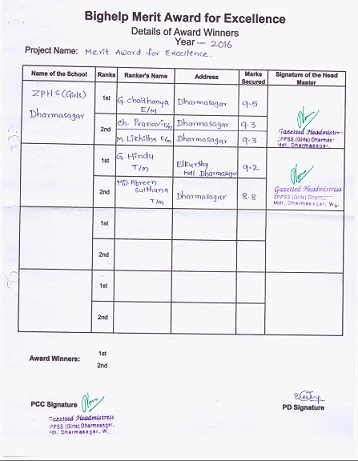 Bighelp Merit Award for Excellence
Details of Award Winners
Year — 2016
Project Name: Merit Award for Excellence.
Name of the School Ranks Ranker's Name Address Marks Secured Signature of the Head Master
ZPHS (Girls)
Dharmasagar
1st G. Chaithanya E/M Dharmasagar 9.5
2nd Ch. Pranavi E/M Dharmasagar 9.3
M Likhitha E/M Dharmasagar 9.3
Gazetted Headmistress
ZPPSS (Girls) Dharmasa
Mdl. Dharmasagar,
1st G. Hindu T/M Elkurthy Mdl. Dharmasagar 9.2
2nd MD. Afreen Sulthana T/M Dharmasagar 8.8
Gazetted Headmistress
ZPPSS (Girls) Dharma
Mdl. Dharmasagar, W
1st
2nd
1st
2nd
Award Winners: 1st
2nd
PCC Signature
Gazetted Headmistress
ZPPSS (Girls) Dharmasagar.
Mdl. Dharmasagar, W
PD Signature